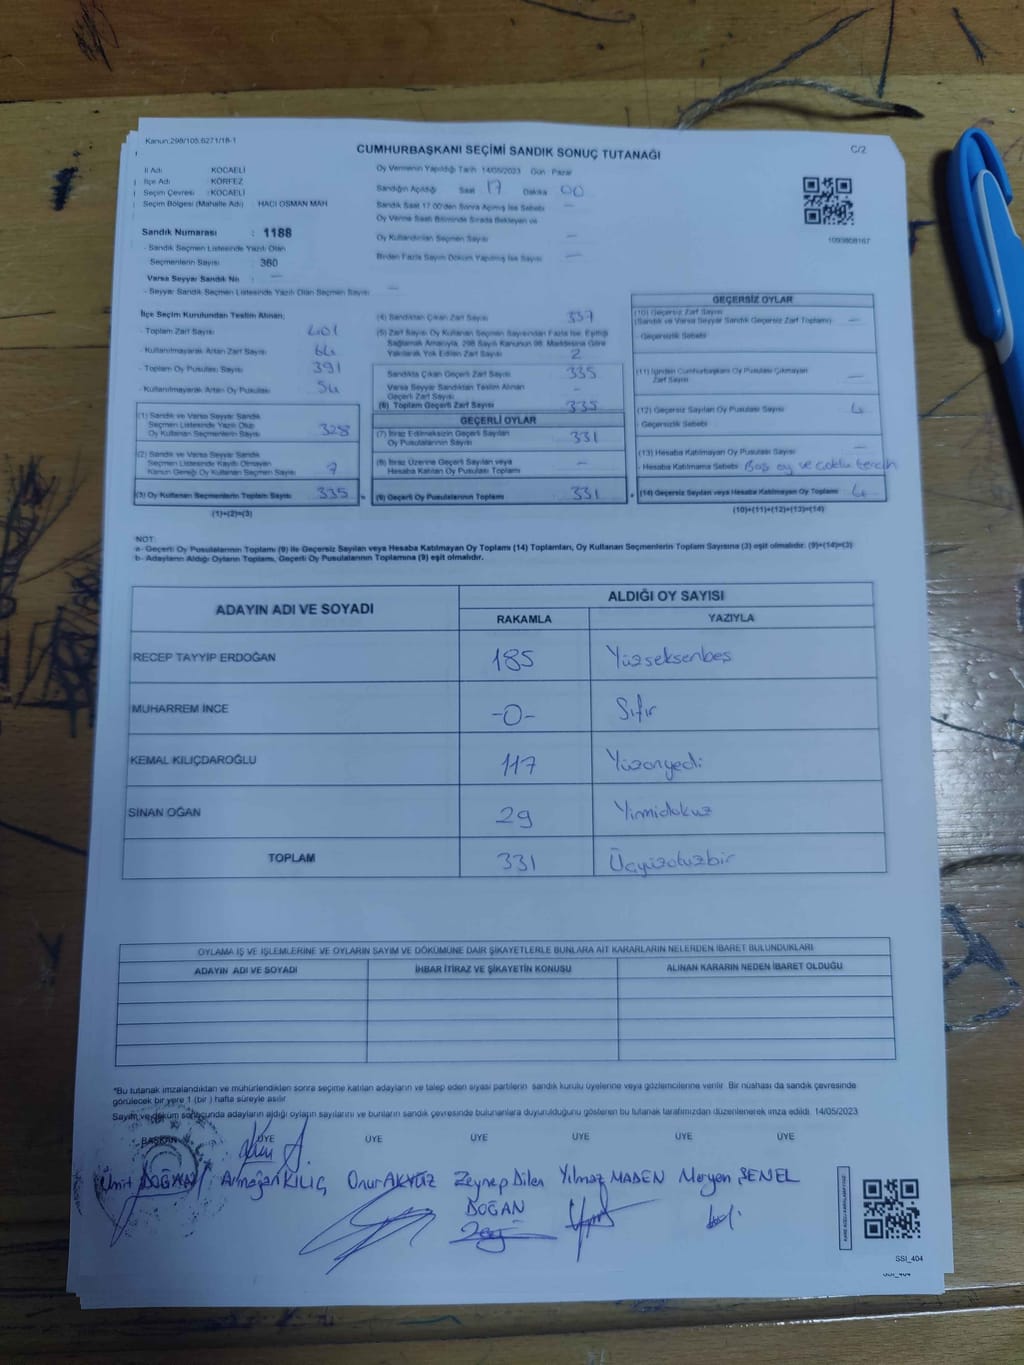 Kanun:298/105.6271/16-1
CUMHURBAŞKANI SEÇİMİ SANDIK SONUÇ TUTANAĞI
C/2
İl Adı : KOCAELİ
İlçe Adı : KÖRFEZ
Seçim Çevresi : KOCAELİ
Seçim Bölgesi (Mahalle Adı) : HACI OSMAN MAH
Sandık Numarası : 1188
- Sandık Seçmen Listesinde Yazılı Olan
Seçmenlerin Sayısı : 360
Varsa Seyyar Sandık No : —
- Seyyar Sandık Seçmen Listesinde Yazılı Olan Seçmen Sayısı : —
Oy Vermenin Yapıldığı Tarih : 14/05/2023 Gün : Pazar
Sandığın Açıldığı Saat 17 Dakika 00
Sandık Saat 17.00'den Sonra Açılmış İse Sebebi —
Oy Verme Saati Bitiminde Sırada Bekleyen ve
Oy Kullandırılan Seçmen Sayısı —
Birden Fazla Sayım Döküm Yapılmış İse Sayısı —
1093808167
İlçe Seçim Kurulundan Teslim Alınan;
- Toplam Zarf Sayısı 401
- Kullanılmayarak Artan Zarf Sayısı 64
- Toplam Oy Pusulası Sayısı 391
- Kullanılmayarak Artan Oy Pusulası 54
(1) Sandık ve Varsa Seyyar Sandık
Seçmen Listesinde Yazılı Olup
Oy Kullanan Seçmenlerin Sayısı 328
(2) Sandık ve Varsa Seyyar Sandık
Seçmen Listesinde Kayıtlı Olmayan
Kanun Gereği Oy Kullanan Seçmen Sayısı 7
(3) Oy Kullanan Seçmenlerin Toplam Sayısı 335
(1)+(2)=(3)
(4) Sandıktan Çıkan Zarf Sayısı 337
(5) Zarf Sayısı Oy Kullanan Seçmen Sayısından Fazla İse, Eşitliği
Sağlamak Amacıyla, 298 Sayılı Kanunun 98. Maddesine Göre
Yakılarak Yok Edilen Zarf Sayısı 2
Sandıkta Çıkan Geçerli Zarf Sayısı 335
Varsa Seyyar Sandıktan Teslim Alınan
Geçerli Zarf Sayısı -
(6) Toplam Geçerli Zarf Sayısı 335
GEÇERLİ OYLAR
(7) İtiraz Edilmeksizin Geçerli Sayılan
Oy Pusulalarının Sayısı 331
(8) İtiraz Üzerine Geçerli Sayılan veya
Hesaba Katılan Oy Pusulaları Toplamı —
(9) Geçerli Oy Pusulalarının Toplamı 331
GEÇERSİZ OYLAR
(10) Geçersiz Zarf Sayısı
(Sandık ve Varsa Seyyar Sandık Geçersiz Zarf Toplamı) —
- Geçersizlik Sebebi
(11) İçinden Cumhurbaşkanı Oy Pusulası Çıkmayan
Zarf Sayısı —
(12) Geçersiz Sayılan Oy Pusulası Sayısı 4
- Geçersizlik Sebebi
(13) Hesaba Katılmayan Oy Pusulası Sayısı —
- Hesaba Katılmama Sebebi Boş oy ve çoklu tercih
(14) Geçersiz Sayılan veya Hesaba Katılmayan Oy Toplamı 4
(10)+(11)+(12)+(13)=(14)
NOT:
a- Geçerli Oy Pusulalarının Toplamı (9) ile Geçersiz Sayılan veya Hesaba Katılmayan Oy Toplamı (14) Toplamları, Oy Kullanan Seçmenlerin Toplam Sayısına (3) eşit olmalıdır. (9)+(14)=(3)
b- Adayların Aldığı Oyların Toplamı, Geçerli Oy Pusulalarının Toplamına (9) eşit olmalıdır.
ADAYIN ADI VE SOYADI
ALDIĞI OY SAYISI
RAKAMLA YAZIYLA
RECEP TAYYİP ERDOĞAN 185 Yüzseksenbeş
MUHARREM İNCE -0- Sıfır
KEMAL KILIÇDAROĞLU 117 Yüzonyedi
SİNAN OĞAN 29 Yirmidokuz
TOPLAM 331 Üçyüzotuzbir
OYLAMA İŞ VE İŞLEMLERİNE VE OYLARIN SAYIM VE DÖKÜMÜNE DAİR ŞİKAYETLERLE BUNLARA AİT KARARLARIN NELERDEN İBARET BULUNDUKLARI
ADAYIN ADI VE SOYADI İHBAR İTİRAZ VE ŞİKAYETİN KONUSU ALINAN KARARIN NEDEN İBARET OLDUĞU
*Bu tutanak imzalandıktan ve mühürlendikten sonra seçime katılan adayların ve talep eden siyasi partilerin sandık kurulu üyelerine veya gözlemcilerine verilir. Bir nüshası da sandık çevresinde
görülecek bir yere 1 (bir) hafta süreyle asılır.
Sayım ve döküm sonucunda adayların aldığı oyların sayılarını ve bunların sandık çevresinde bulunanlara duyurulduğunu gösteren bu tutanak tarafımızdan düzenlenerek imza edildi. 14/05/2023
BAŞKAN ÜYE ÜYE ÜYE ÜYE ÜYE ÜYE
Ümit DOĞAN Armağan KILIÇ Onur AKYÜZ Zeynep Dilan Yılmaz MADEN Meryem ŞENEL
DOĞAN
SSI_404
SSI_404